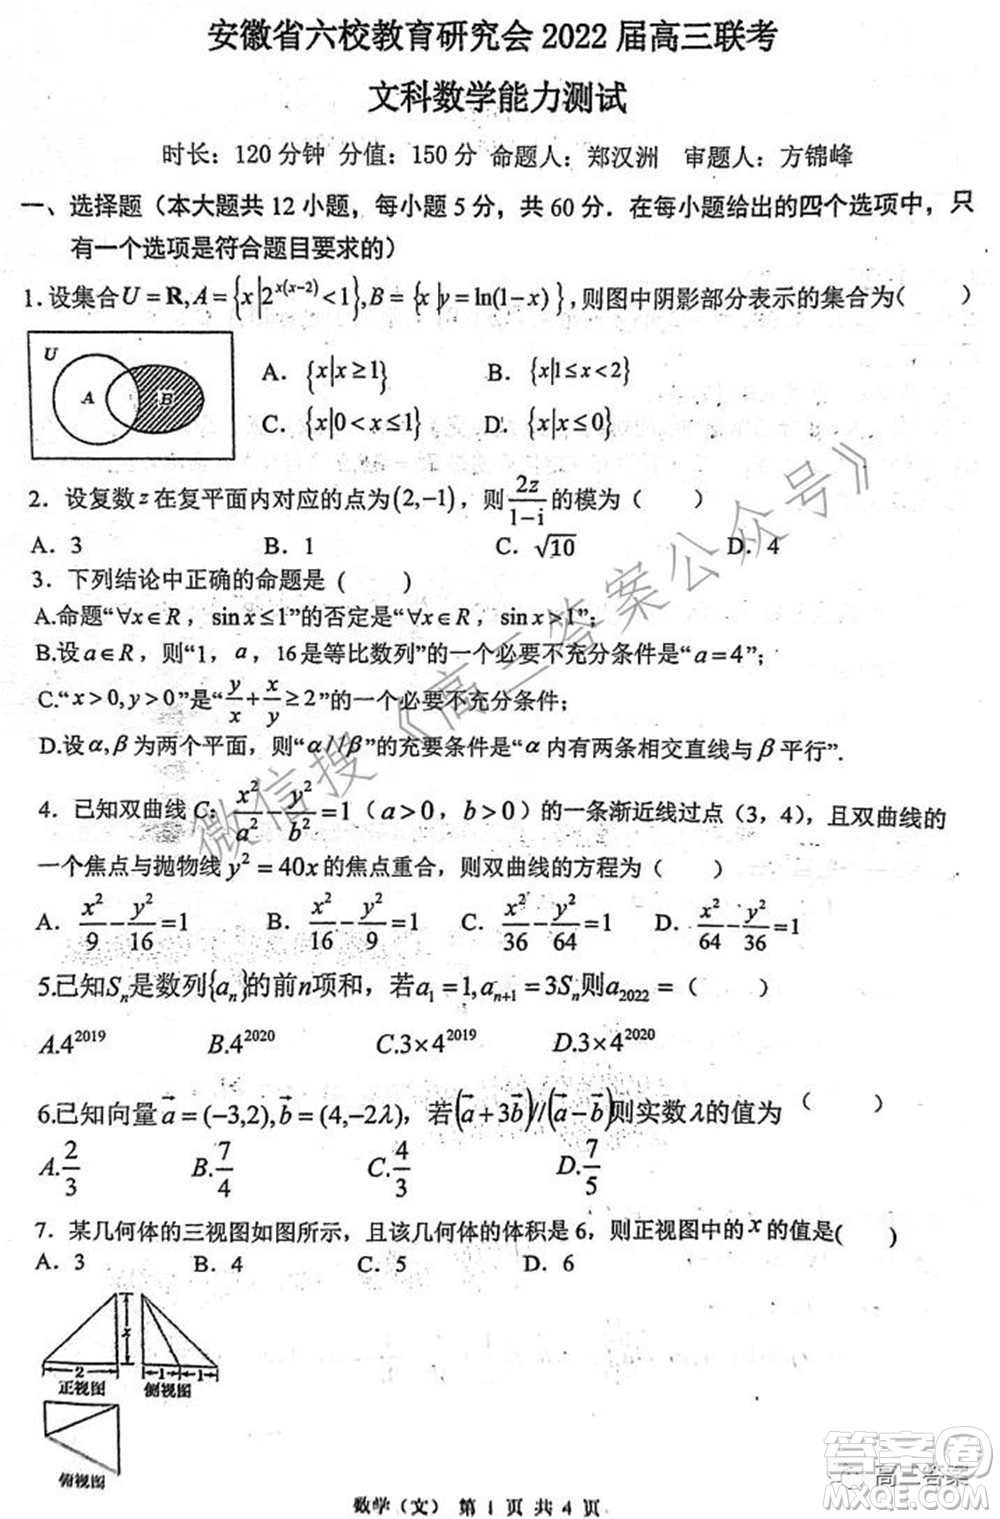 安徽省六校教育研究会 2022 届高三联考
文科数学能力测试
时长：120 分钟 分值：150 分 命题人：郑汉洲 审题人：方锦峰
一、选择题（本大题共 12 小题，每小题 5 分，共 60 分．在每小题给出的四个选项中，只
有一个选项是符合题目要求的）
1.设集合 U = R, A = {x|2^{x(x−2)} < 1}, B = {x|y = ln(1−x)}, 则图中阴影部分表示的集合为（ ）
U
A
B
A． {x|x ≥ 1} B． {x|1 ≤ x < 2}
C． {x|0 < x ≤ 1} D． {x|x ≤ 0}
2．设复数 z 在复平面内对应的点为 (2,−1)，则 2z/(1−i) 的模为（ ）
A．3 B．1 C．√10 D．4
3．下列结论中正确的命题是（ ）
A.命题“∀x∈R，sin x ≤ 1”的否定是“∀x∈R，sin x > 1”；
B.设 a∈R，则“1，a，16 是等比数列”的一个必要不充分条件是“a = 4”；
C.“x > 0, y > 0”是“y/x + x/y ≥ 2”的一个必要不充分条件；
D.设 α,β 为两个平面，则“α//β”的充要条件是“α 内有两条相交直线与 β 平行”.
4．已知双曲线 C：x²/a² − y²/b² = 1（a > 0，b > 0）的一条渐近线过点（3，4），且双曲线的
一个焦点与抛物线 y² = 40x 的焦点重合，则双曲线的方程为（ ）
A．x²/9 − y²/16 = 1 B．x²/16 − y²/9 = 1 C．x²/36 − y²/64 = 1 D．x²/64 − y²/36 = 1
5.已知 Sₙ 是数列{aₙ}的前 n 项和，若 a₁ = 1, aₙ₊₁ = 3Sₙ 则 a₂₀₂₂ =（ ）
A.4²⁰¹⁹ B.4²⁰²⁰ C.3×4²⁰¹⁹ D.3×4²⁰²⁰
6.已知向量 a⃗ = (−3,2), b⃗ = (4,−2λ)，若 (a⃗ + 3b⃗)//(a⃗ − b⃗) 则实数 λ 的值为（ ）
A.2/3 B.7/4 C.4/3 D.7/5
7．某几何体的三视图如图所示，且该几何体的体积是 6，则正视图中的 x 的值是( )
A．3 B．4 C．5 D．6
x
2 1 1
正视图 侧视图
俯视图
数学（文） 第 1 页 共 4 页
微信搜《高三答案公众号》
答案卷
高三答案